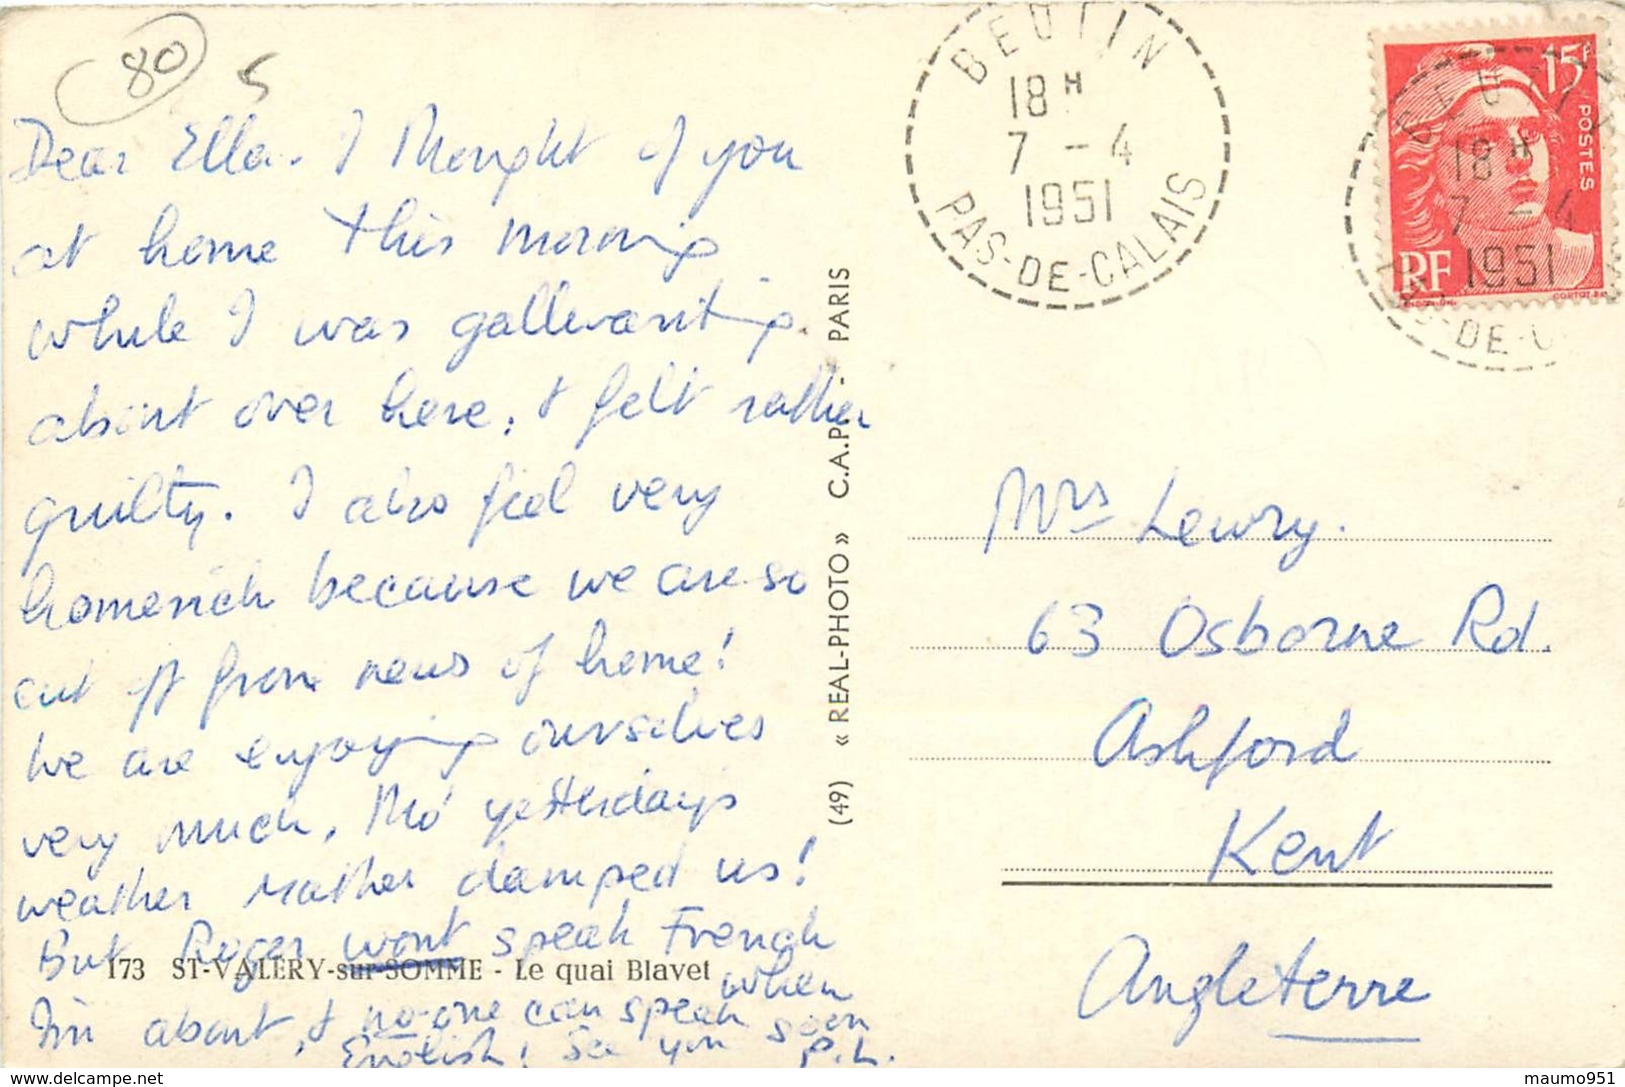 80
5
Dear Ella. I thought of you
at home this morning
while I was gallivanting
about over here, & felt rather
guilty. I also feel very
homesick because we are so
cut off from news of home!
We are enjoying ourselves
very much, tho' yesterdays
weather rather damped us!
But Roger wont speak French
when
I'm about, & no-one can speak
English! See you soon
P.L.
173 ST-VALERY-sur-SOMME - Le quai Blavet
(49) « REAL-PHOTO » C.A.P. - PARIS
BEUTIN
18H
7 - 4
1951
PAS-DE-CALAIS
15F
POSTES
RF
BEUTIN
18H
7 - 4
1951
Mrs Lewry.
63 Osborne Rd.
Ashford
Kent
Angleterre
maumo951